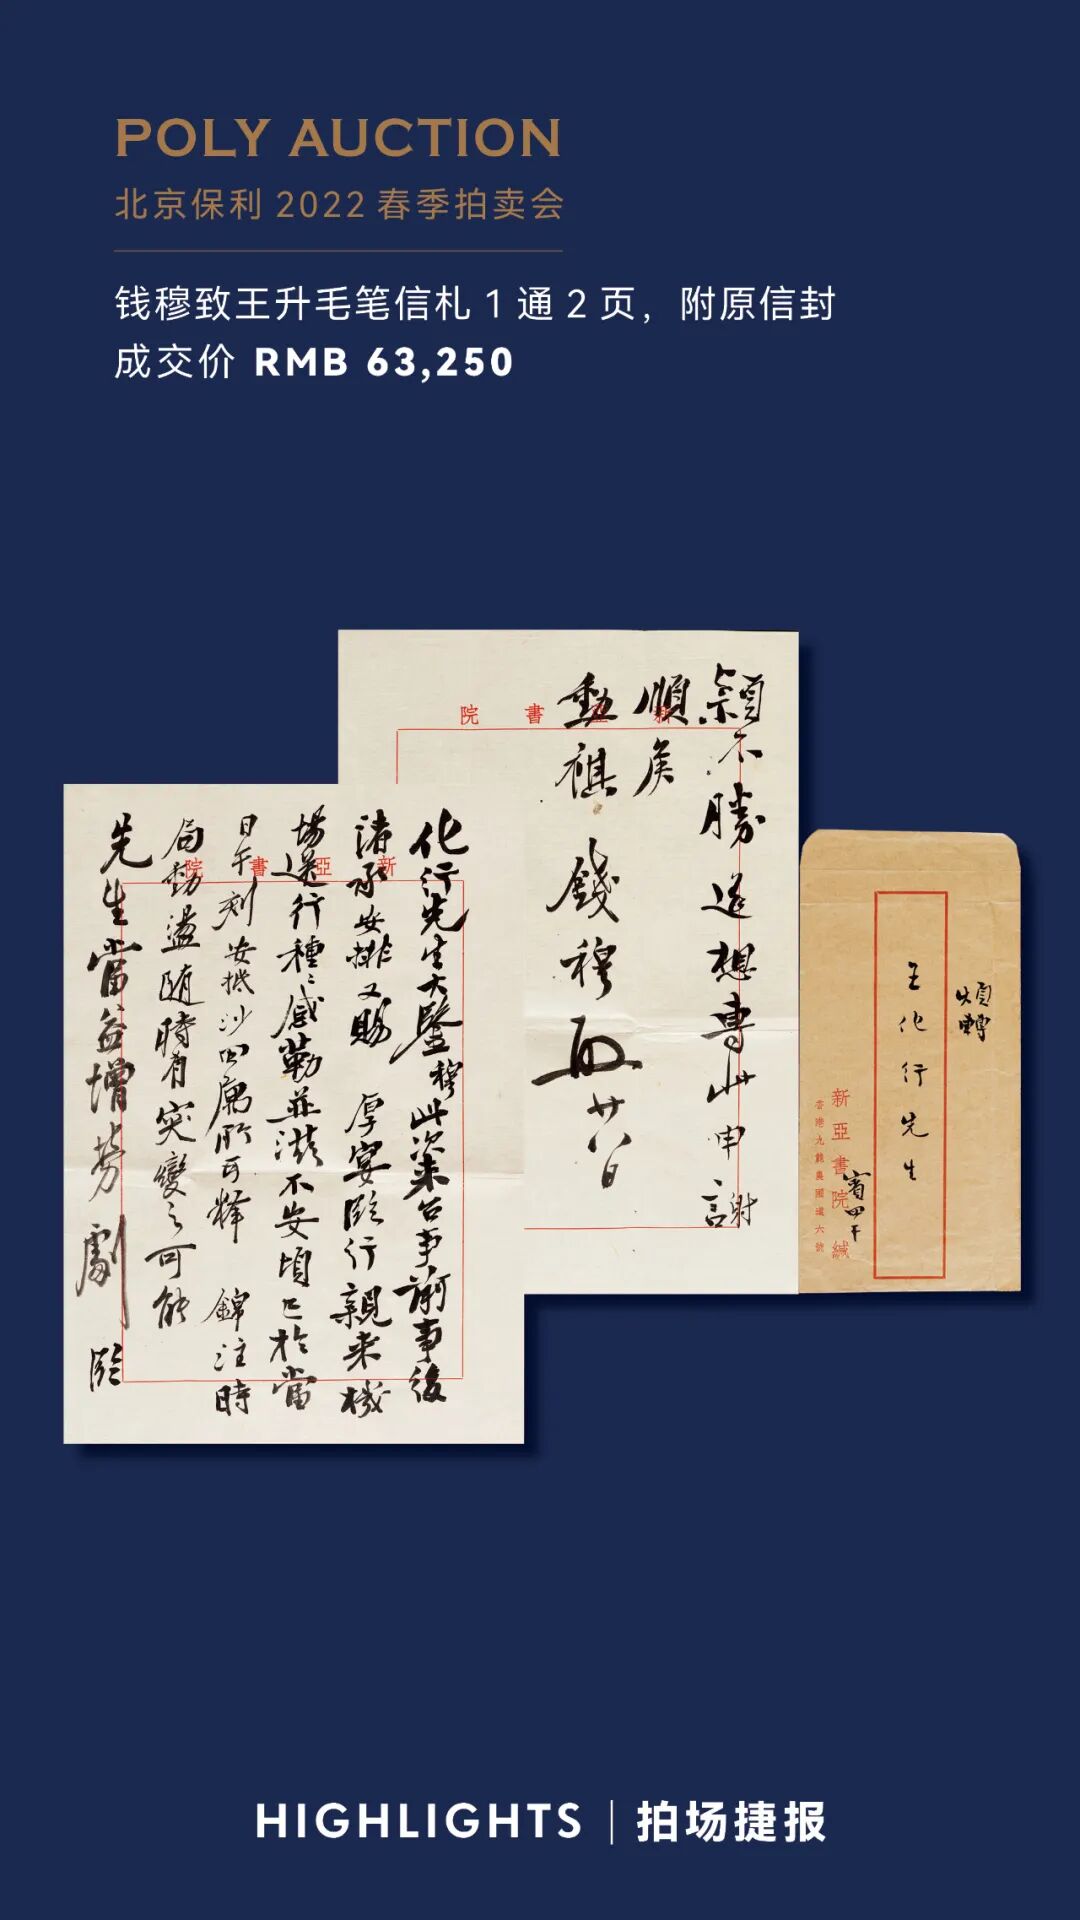 POLY AUCTION
北京保利 2022 春季拍卖会
钱穆致王升毛笔信札 1 通 2 页，附原信封
成交价 RMB 63,250
新亞書院
化行先生大鑒穆此次來台事前事後
諸承安排又賜 厚宴臨行親來機
場送行種種感勒並滋不安頃已於當
日午刻安抵沙田寓所可釋 錦注時
局動盪隨時有突變之可能
先生當益增勞劇 臨
新亞書院
穎不勝遥想專此申謝
順矦
勳祺 錢穆 啟 廿八日
煩轉
王化行先生
新亞書院 緘
香港九龍農圃道六號
賓四
HIGHLIGHTS | 拍场捷报